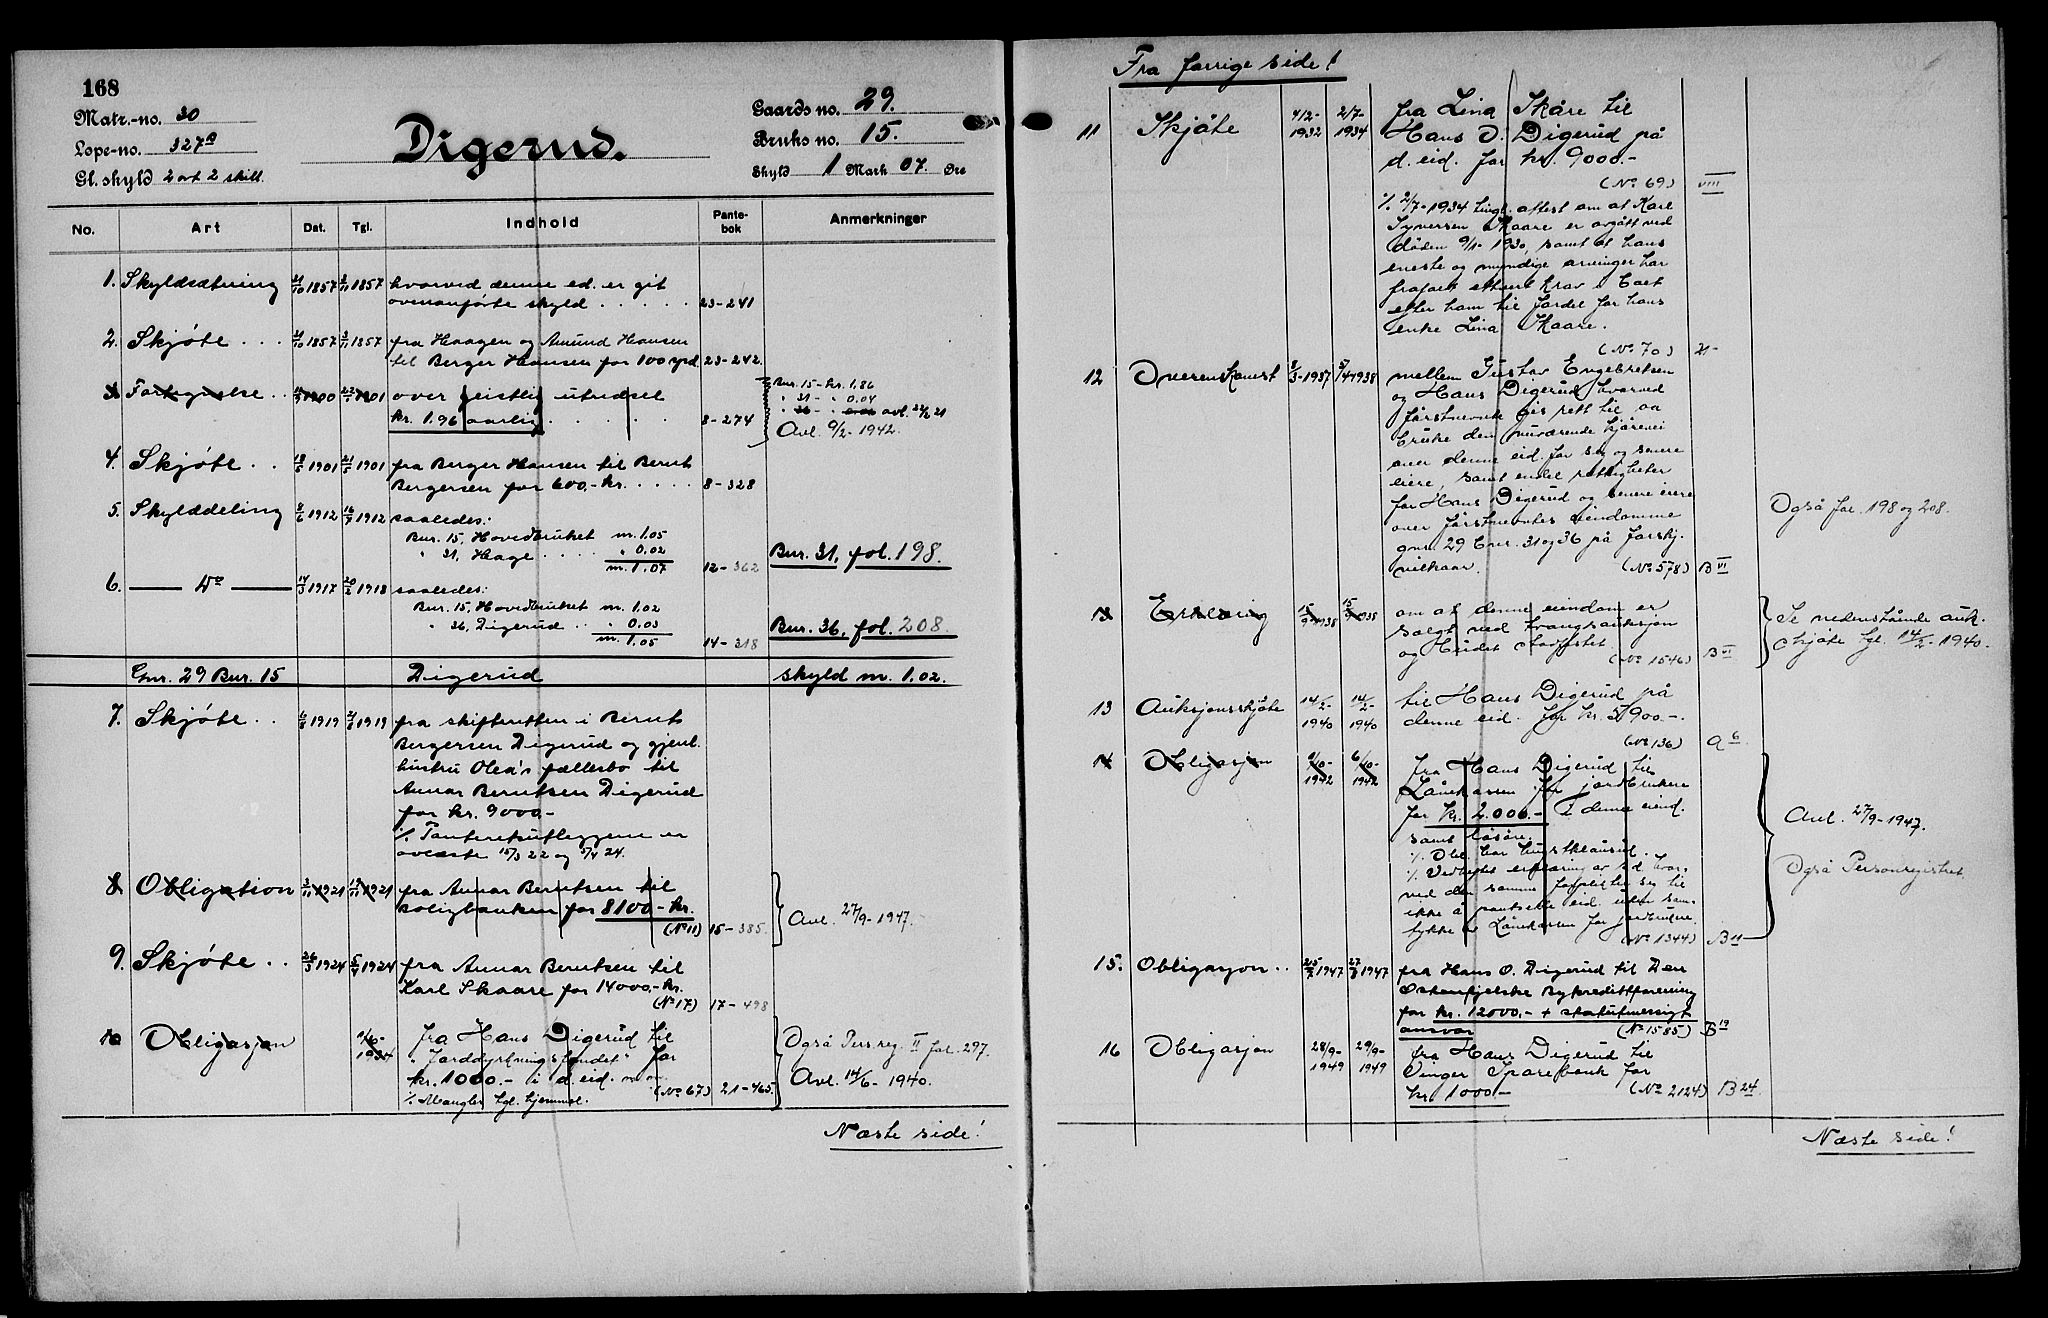 168
Matr.-no. 30
Løpe-no. 327a
Gl. skyld 2 ort 2 skill.
Digerud.
Gaards no. 29.
Bruks no. 15.
Skyld 1 Mark 07. Øre
No. Art Dat. Tgl. Indhold Pante-bok Anmerkninger
1. Skyldsætning 21/10 1857 2/11 1857 hvorved denne ed. er git
ovenanførte skyld . . . . . 23-241
2. Skjøte . . . 21/10 1857 2/11 1857 fra Haagen og Amund Hansen
til Berger Hansen for 100 spd 23-242.
3. Fortegnelse . . 1900 1901 over geistlig utredsel
kr. 1.96 aarlig . . . . . 8-274
Bnr. 15 - kr. 1.86
" 31 - " 0.04
" 36 - " avl. 22/2 21
Avl. 9/2-1942.
4. Skjøte . . 1901 1901 fra Berger Hansen til Bernt
Bergersen for 600,- kr. . . . . 8-328
5. Skylddeling 8/6 1912 16/7 1912 saaledes:
Bnr. 15, Hovedbruket m. 1.05
" 31, Hage . . . . " 0.02
m. 1.07 12-362
Bnr. 31, fol. 198.
6. Do 14/3 1917 20/2 1918 saaledes:
Bnr. 15, Hovedbruket m. 1.02
" 36, Digerud . . " 0.03
m. 1.05 14-318
Bnr. 36, fol. 208
Gnr. 29 Bnr. 15 Digerud skyld m. 1.02.
7. Skjøte . . 1919 1919 fra skifteretten i Bernt
Bergersen Digerud og gjenl.
hustru Olea's fællesbo til
Annar Berntsen Digerud
for kr. 9000.-
%. Panteretsutlæggene er
avlæste 15/3 22 og 5/4 24.
8. Obligation 1921 1921 fra Annar Berntsen til
Boligbanken for 8100.- kr.
(No 11) 15-385.
Avl. 27/9-1947.
9. Skjøte . . 26/3 1924 5/4 1924 fra Annar Berntsen til
Karl Skaare for 14000.- kr.
(No 17) 17-498
10 Obligasjon 1934 fra Hans Digerud til
"Jorddyrkningsfondet" for
kr. 1000.- i d. eid.
%. Mangler tgl. hjemmel. (No 67) 21-465.
Også Pers.reg. II fol. 297.
Avl. 14/6-1940.
Næste side!
Fra forrige side!
11 Skjøte 4/2-1932 2/7-1934 fra Lina Skåre til
Hans O. Digerud på
d. eid. for kr. 9000.-
(No 69) VIII
%. 2/7-1934 tingl. attest om at Karl
Syversen Skaare er avgått ved
døden 9/1-1930, samt at hans
eneste og myndige arvinger har
frafalt ethvert krav i boet
efter ham til fordel for hans
enke Lina Skaare.
(No 70) 21-
12 Overenskomst 1937 1938 mellem Gustav Engebretsen
og Hans Digerud hvorved
førstnevnte gis rett til aa
bruke den nuværende kjørevei
over denne eid. for seg og senere
eiere, samt endel rettigheter
for Hans Digerud og senere eiere
over førstnevntes eiendomme
gnr. 29 bnr. 31 og 36 på forskj.
vilkaar. (No 578) B VI
Også fol. 198 og 208.
13 Erklæring 1938 1938 om at denne eiendom er
solgt ved tvangsauksjon
og budet stadfestet.
(No 1546) B VI
Se nedenstående auk.
skjøte tgl. 14/2-1940.
13 Auksjonsskjøte 14/2-1940 14/2-1940 til Hans Digerud på
denne eid. for kr. 5900.-.
(No 136) A 6
14 Obligasjon 1942 1942 fra Hans Digerud til
Lånekassen for jordbrukere
for kr. 2.000.- i denne eiend.
samt løsøre.
%. Obl. har husetklausul.
%. Vedheftet erklæring av s.d. hvor-
ved den samme forplikter seg til
ikke å pantsette eid. uten sam-
tykke av Lånekassen for jordbrukere.
(No 1344) B 11
Avl. 27/9-1947.
Også Personregistret.
15. Obligasjon . . 1947 1947 fra Hans O. Digerud til Den
Østenfjelske Bykredittforening
for kr. 12000.- + statutmessigt
ansvar (No 1585) B 19
16 Obligasjon 28/9-1949 29/9-1949 fra Hans Digerud til
Vinger Sparebank for
kr. 1000.- (No 2124) B 24.
Næste side!